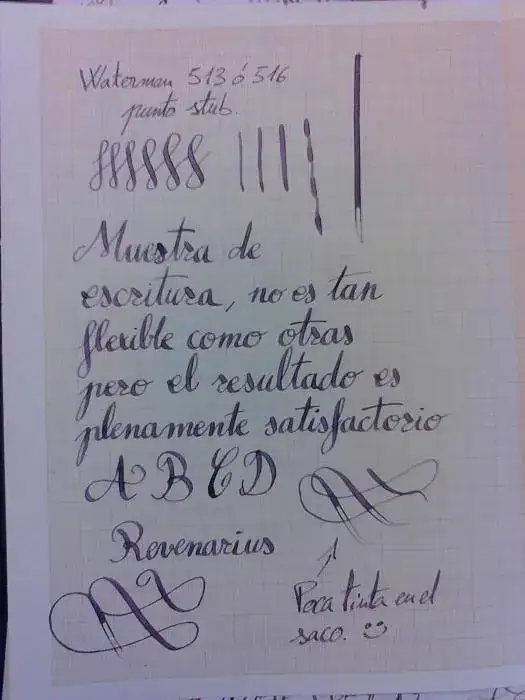 Waterman 513 ó 516
punto stub.
Muestra de
escritura, no es tan
flexible como otras
pero el resultado es
plenamente satisfactorio
A B C D
Revenarius
Poca tinta en el
saco. :)